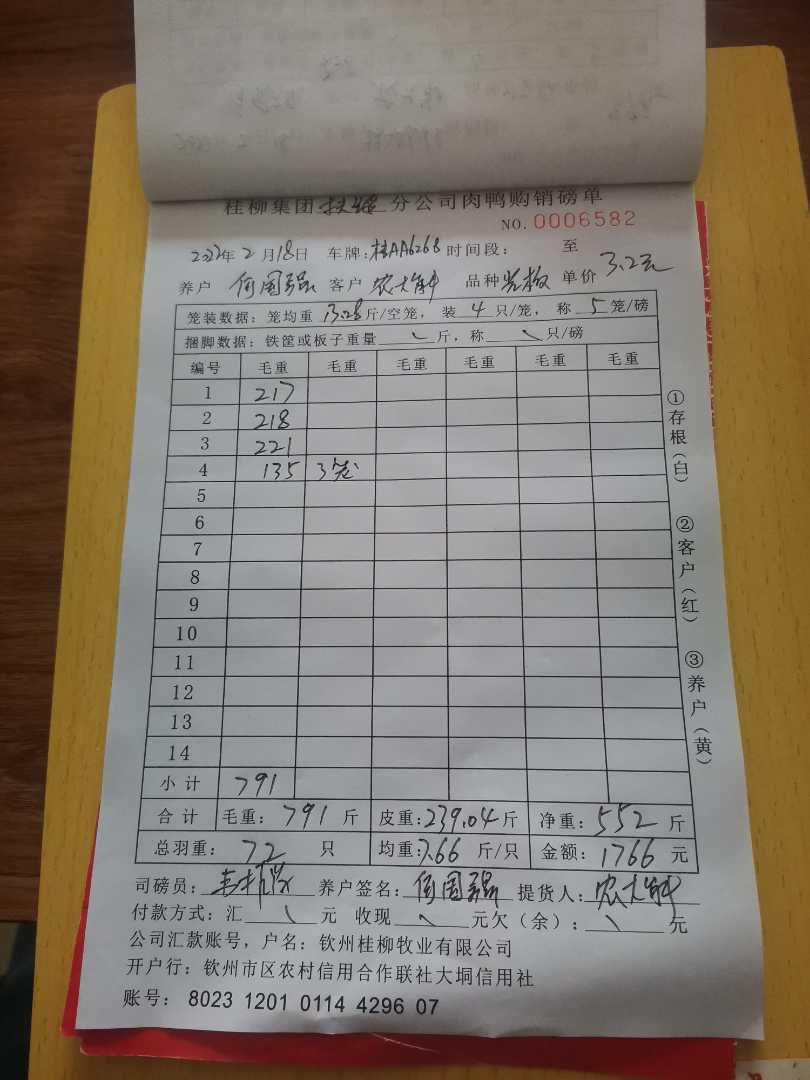 桂柳集团扶绥分公司肉鸭购销磅单
NO.0006582
2022年2月18日 车牌:桂AA6268 时间段: 至
养户 何国强 客户 农大科 品种 单价 3.2元
笼装数据:笼均重 13.28 斤/空笼, 装 4 只/笼, 称 5 笼/磅
捆脚数据:铁筐或板子重量 斤,称 只/磅
编号 毛重 毛重 毛重 毛重 毛重 毛重
1 217
2 218
3 221
4 135 3笼
5
6
7
8
9
10
11
12
13
14
小计 791
合计 毛重: 791 斤 皮重: 239.04 斤 净重: 552 斤
总羽重: 72 只 均重: 7.66 斤/只 金额: 1766 元
司磅员: 养户签名: 何国强 提货人: 农大科
付款方式:汇 元 收现 元欠(余): 元
公司汇款账号,户名:钦州桂柳牧业有限公司
开户行:钦州市区农村信用合作联社大垌信用社
账号: 8023 1201 0114 4296 07
①存根(白)
②客户(红)
③养户(黄)